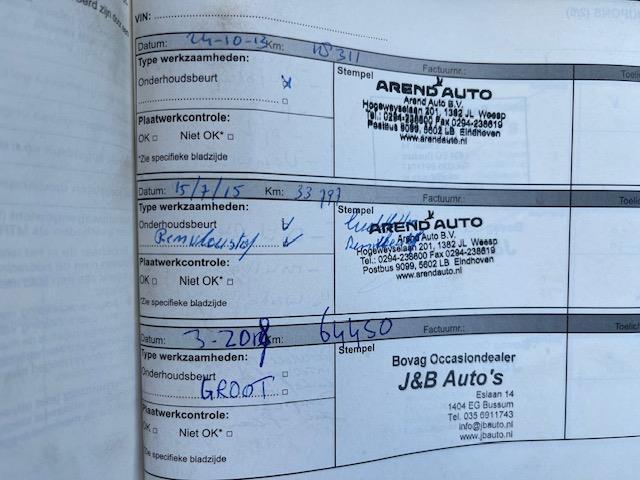 VIN:
Datum: 24-10-13 Km: 18311
Type werkzaamheden:
Stempel
Factuurnr.:
Onderhoudsbeurt
Plaatwerkcontrole:
OK Niet OK*
*Zie specifieke bladzijde
AREND AUTO
Arend Auto B.V.
Hogeweyselaan 201, 1382 JL Weesp
Tel.: 0294-238600 Fax 0294-238619
Postbus 9099, 5602 LB Eindhoven
www.arendauto.nl
Datum: 15/7/15 Km: 33797
Type werkzaamheden:
Stempel
Factuurnr.:
Onderhoudsbeurt
Remvloeistof
Plaatwerkcontrole:
OK Niet OK*
*Zie specifieke bladzijde
AREND AUTO
Arend Auto B.V.
Hogeweyselaan 201, 1382 JL Weesp
Tel.: 0294-238600 Fax 0294-238619
Postbus 9099, 5602 LB Eindhoven
www.arendauto.nl
Datum: 3-2018 Km: 64450
Type werkzaamheden:
Stempel
Factuurnr.:
Onderhoudsbeurt
GROOT
Plaatwerkcontrole:
OK Niet OK*
*Zie specifieke bladzijde
Bovag Occasiondealer
J&B Auto's
Eslaan 14
1404 EG Bussum
Tel. 035 6911743
info@jbauto.nl
www.jbauto.nl